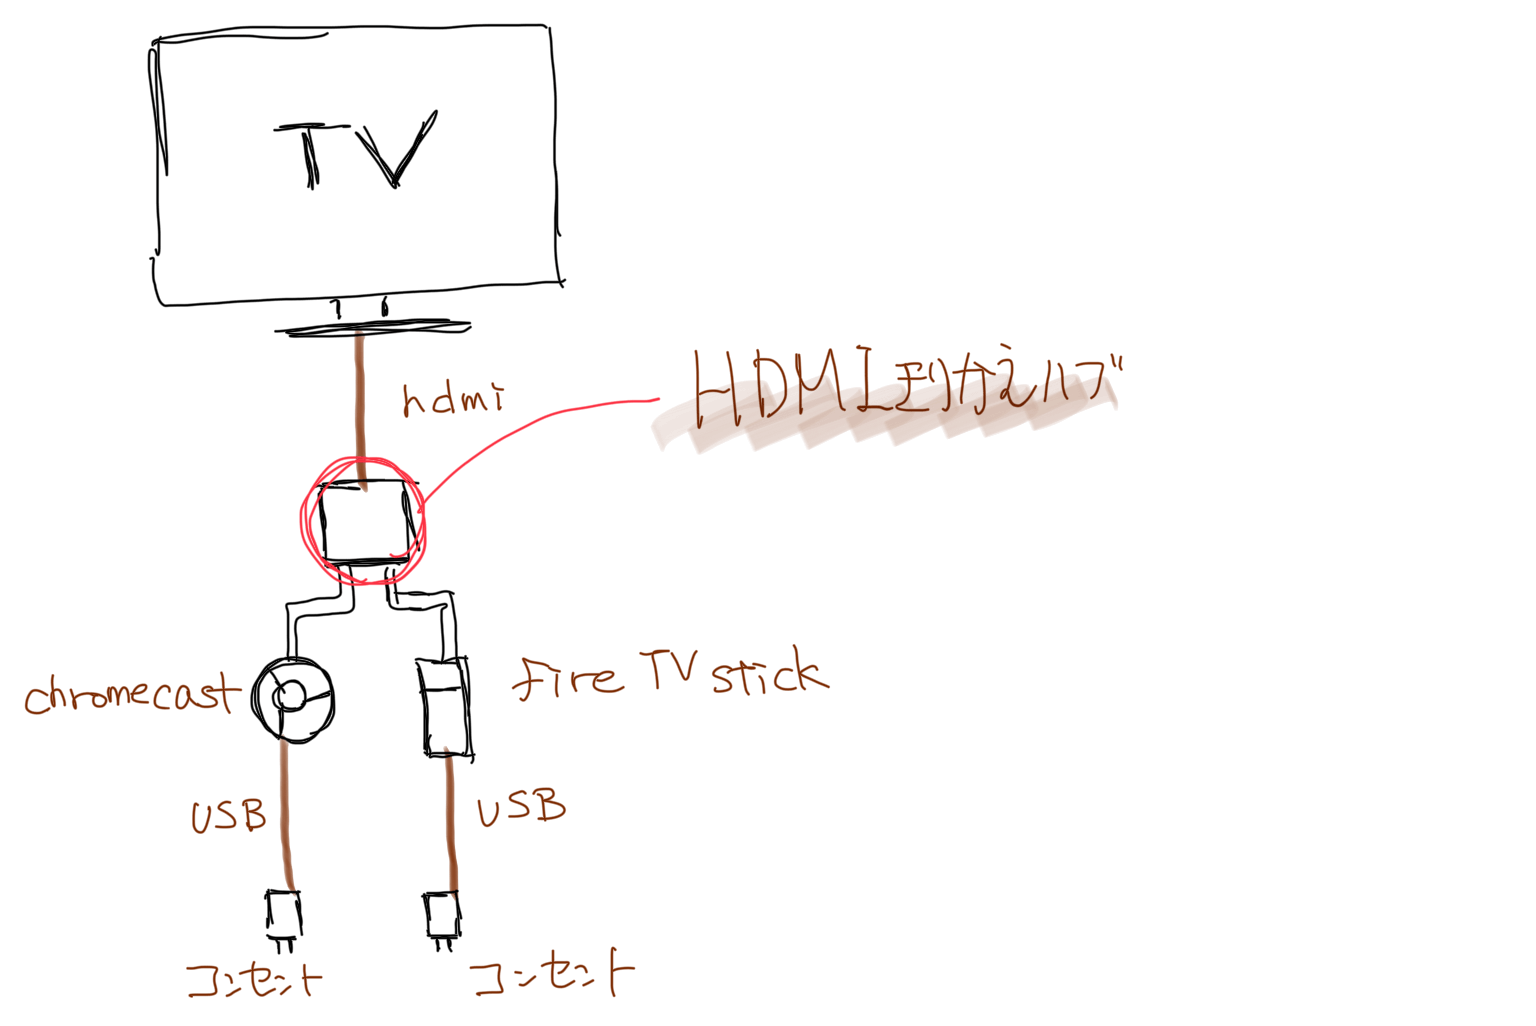 TV
hdmi
HDMI切りかえハブ
chromecast
Fire TV stick
USB
USB
コンセント
コンセント